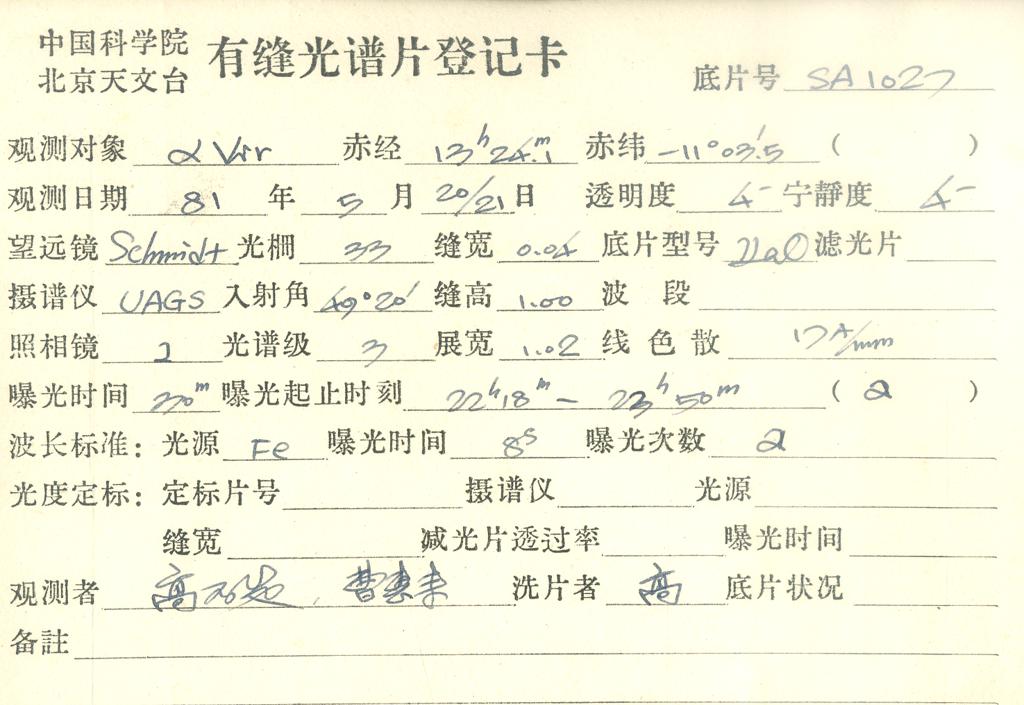 中国科学院
北京天文台
有缝光谱片登记卡
底片号 SA1027
观测对象 α Vir 赤经 13h24m.1 赤纬 -11°03'.5 ( )
观测日期 81 年 5 月 20/21 日 透明度 4- 宁静度 4-
望远镜 Schmidt 光栅 33 缝宽 0.04 底片型号 IIaO 滤光片
摄谱仪 UAGS 入射角 49°20' 缝高 1.00 波段
照相镜 2 光谱级 3 展宽 1.02 线色散 17A/mm
曝光时间 曝光起止时刻 22h18m - 23h50m ( a )
波长标准: 光源 Fe 曝光时间 8s 曝光次数 2
光度定标: 定标片号 摄谱仪 光源
缝宽 减光片透过率 曝光时间
观测者 洗片者 高 底片状况
备註